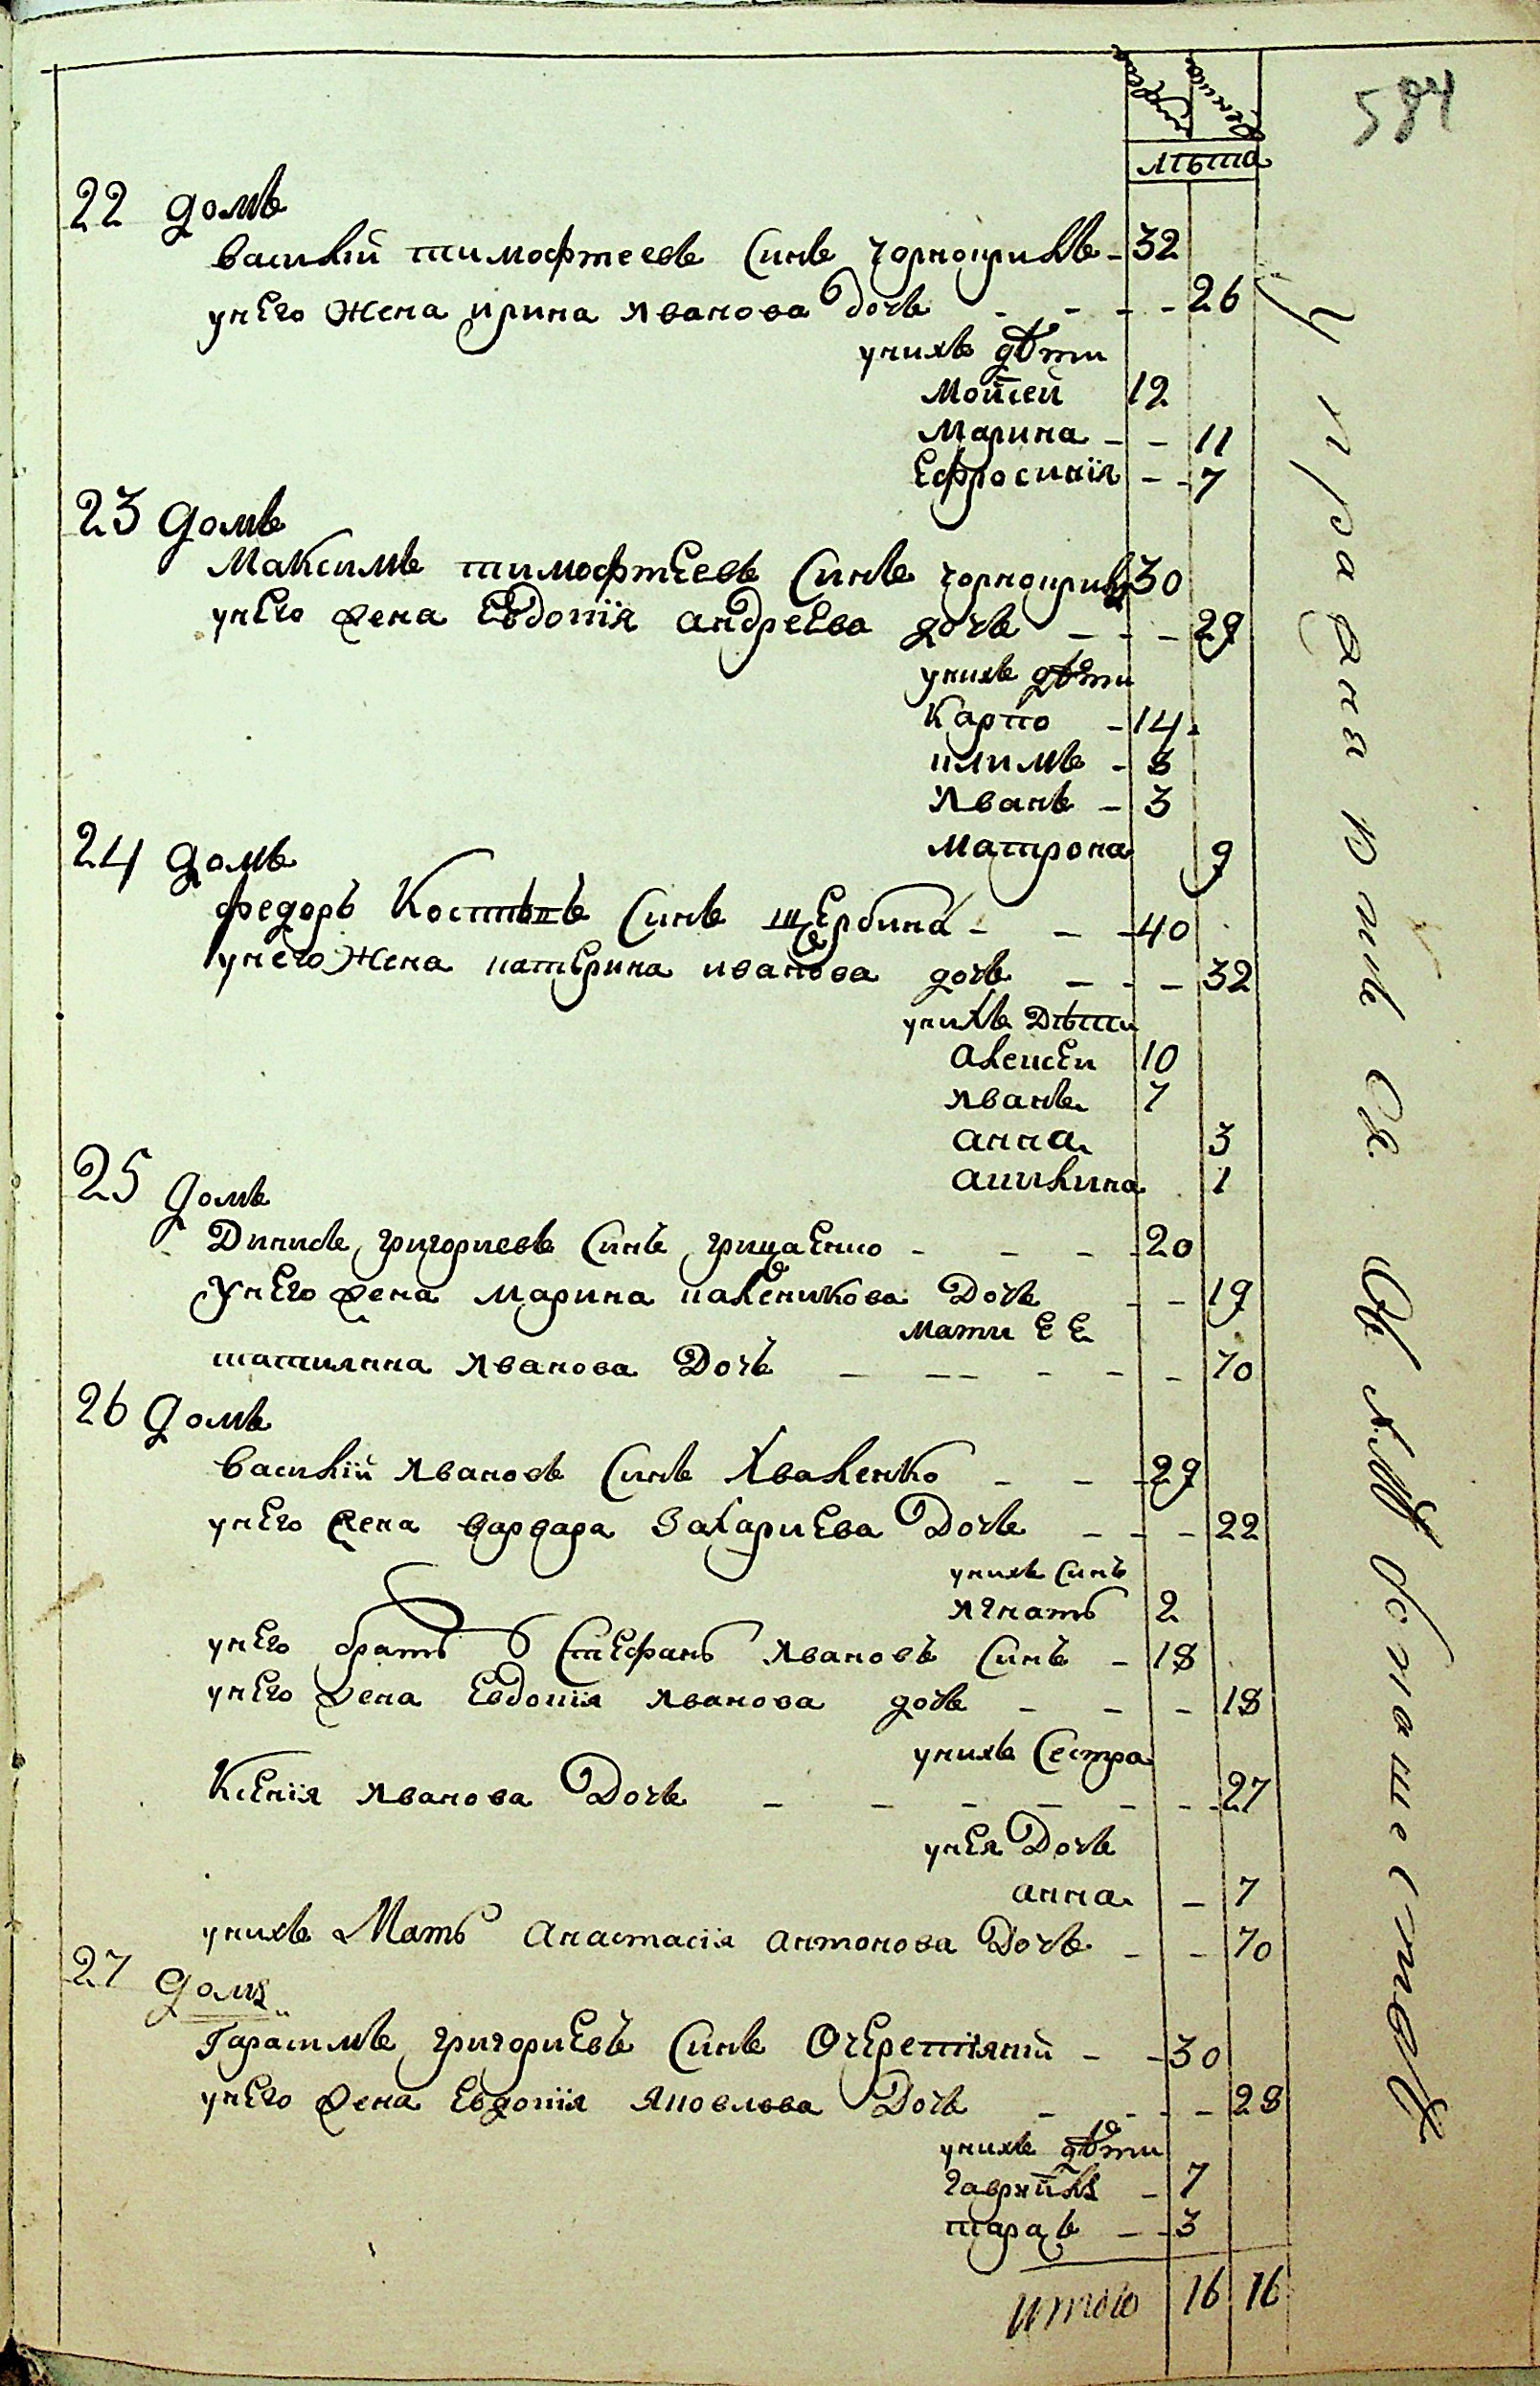 584
лѣта
22 домъ
василий тимофтеевъ синъ чорноприкъ - 32
унего жена ирина ивановa дочъ - - - - 26
унихъ дѣти
Мойсей 12
Марина - - 11
Ефросинія - - 7
23 домъ
Максимъ тимофтеевъ синъ чорноприкъ 30
унего жена Евдокія андреева дочъ - - - 29
унихъ дѣти
Карпо - 14
климъ - 8
Иванъ - 3
Матрона 9
24 домъ
федоръ синъ щербина - - - 40
унего жена катерина иванова дочъ - - - 32
унихъ Дѣти
алексеи 10
иванъ 7
анна 3
акилина 1
25 домъ
Динисъ григориевъ синъ грицаенко - - - - 20
Унего жена марина Дочъ - - 19
мати ее
татияна иванова Дочъ - - - - - - 70
26 домъ
василій ивановъ синъ - - - 29
унего жена варвара Захариева Дочъ - - - 22
унихъ синъ
игнатъ 2
унего братъ Стефанъ ивановъ синъ - 18
унего жена Евдокія иванова дочъ - - - 18
унихъ сестра
Ксенія иванова Дочъ - - - - - - - 27
унея Дочъ
анна - 7
унихъ Мать анастасія антонова Дочъ - - 70
27 домъ
Гарасимъ григориевъ синъ Очеретяний - - 30
унего жена Евдокія яковлева Дочъ - - - - 28
унихъ дѣти
гаврійлъ - 7
тарасъ - - 3
итого 16 16